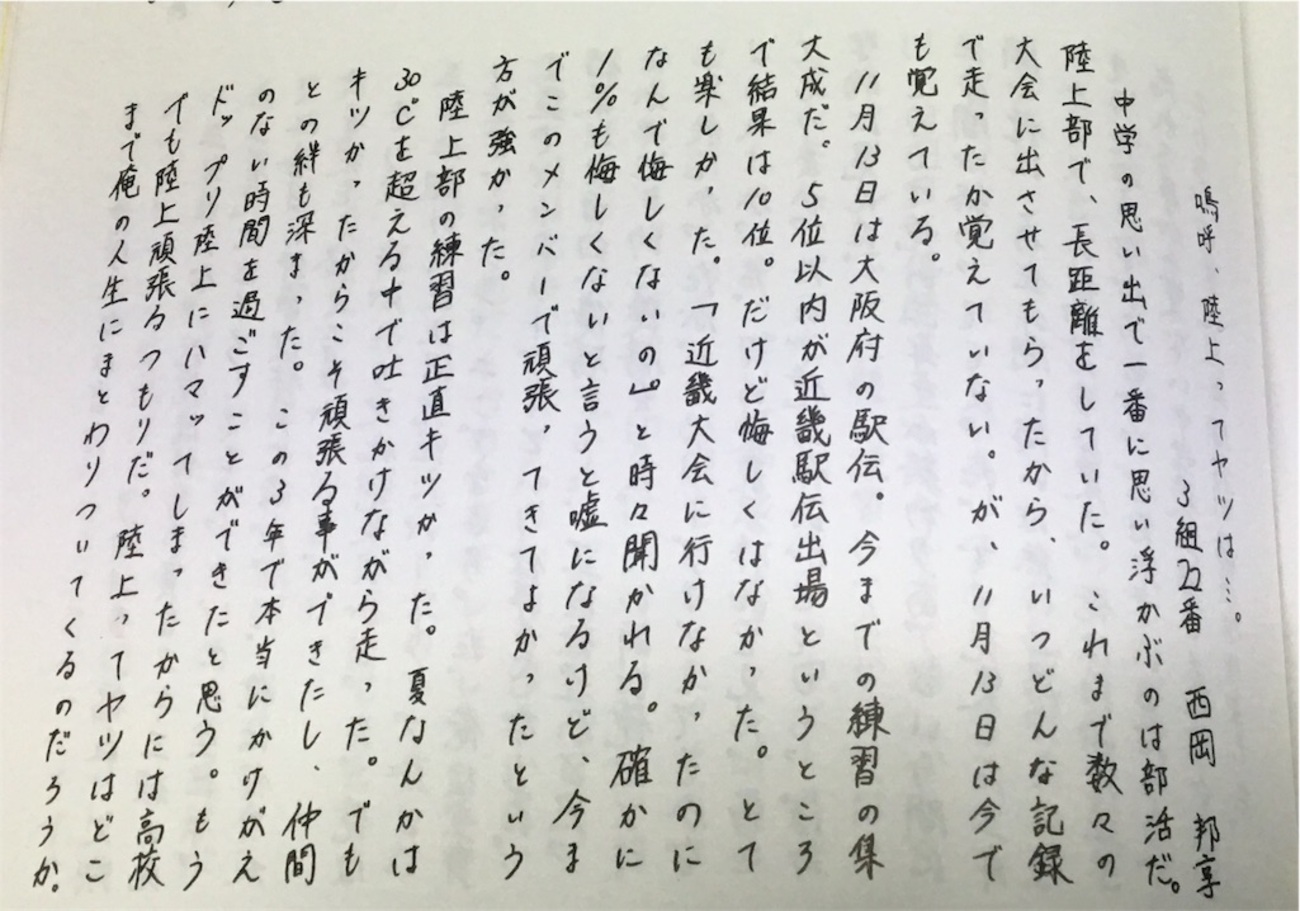 嗚呼、陸上ってヤツは…。
3組22番 西岡 邦享
中学の思い出で一番に思い浮かぶのは部活だ。
陸上部で、長距離をしていた。これまで数々の
大会に出させてもらったから、いつどんな記録
で走ったか覚えていない。が、11月13日は今で
も覚えている。
11月13日は大阪府の駅伝。今までの練習の集
大成だ。5位以内が近畿駅伝出場というところ
で結果は10位。だけど悔しくはなかった。とて
も楽しかった。「近畿大会に行けなかったのに
なんで悔しくないの。」と時々聞かれる。確かに
1%も悔しくないと言うと嘘になるけど、今ま
でこのメンバーで頑張ってきてよかったという
方が強かった。
陸上部の練習は正直キツかった。夏なんかは
30℃を超える中で吐きかけながら走った。でも
キツかったからこそ頑張る事ができたし、仲間
との絆も深まった。この3年で本当にかけがえ
のない時間を過ごすことができたと思う。もう
ドップリ陸上にハマッてしまったからには高校
でも陸上頑張るつもりだ。陸上ってヤツはどこ
まで俺の人生にまとわりついてくるのだろうか。